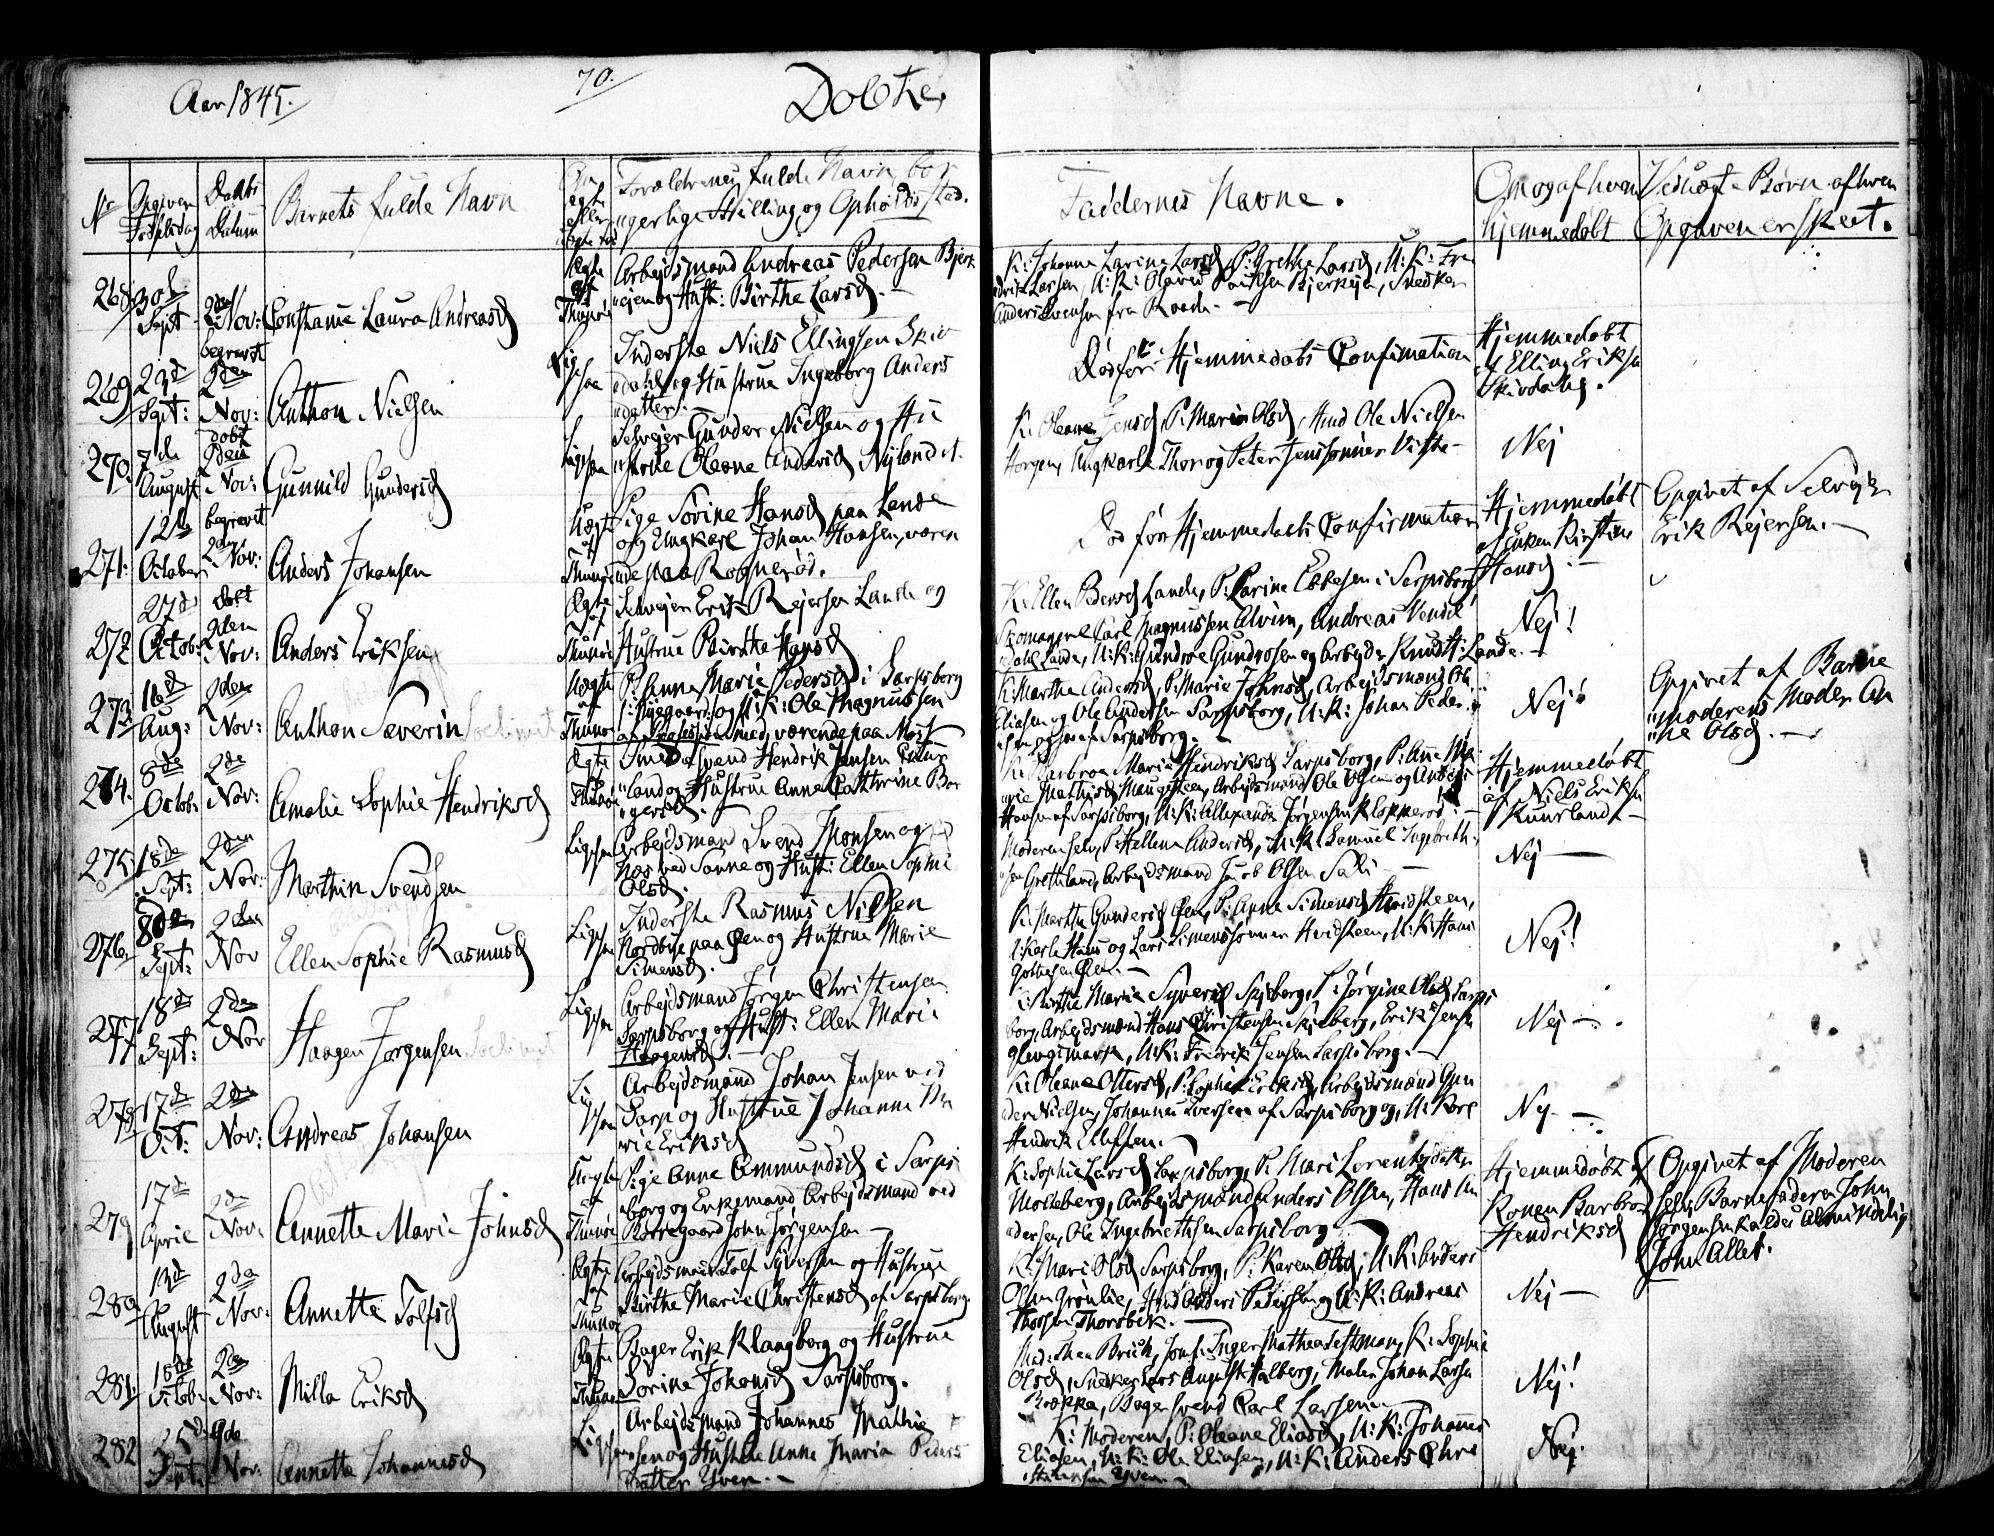 Aar 1845.
70.
Døbte.
No
Opgiven Fødselsdag
Daabs Datum
Barnets fulde Navn
Forældrenes fulde Navn, bor
gerlige Stilling og Opholdssted.
Faddernes Navne.
Om og af hvem
hjemmedøbt
Uægte Børn af hvem
Opgaven er skeet.
268
30te Sept
2den Nov:
Constance Laura Andreasd
Ægte af Thunøe
Arbejdsmand Andreas Pedersen Bjerk
"eien og Hust: Birthe Larsd. —
K: Johanne Larine Larsd, P: Grethe Larsd, U: K: Fre
drik Larsen, U: K: Olavus Poulsen Bjerkeien, Snedker
Anders Svensen fra Raade. —
269
23de Sept:
begravet 2den Nov:
Anthon Nielsen
Ligesaa
Inderste Niels Ellingsen Skiv
"dahl og Hustrue Ingeborg Anders
"datter.
Død før Hjemmedaabs Confirmation
Hjemmedøbt
af Elling Eriksen
Skivdahl.
270.
7de August
døbt 2den Nov:
Gunnild Gundersd
Ligesaa
Selveier Gunder Nielsen og Hu
"strue Oleane Andersd Nyland
K: Oleane Jensd, P: Maria Olsd, Hmd Ole Nielsen
Horgen, Ungkarle Thor og Peter Jenssønner Viste —
Nej
271.
12te October
begravet 2den Nov:
Anders Johansen
Uægte af Thunøe
Pige Sørine Hansd paa Lande
og Ungkarl Johan Hansen, væren
de paa Rognerød.
Død før Hjemmedaabs Confirmation
Hjemmedøbt
af Enken Kirstine
Hansd. —
Opgivet af Selvejer
Erik Rejersen. —
272
27de Octob:
døbt 2den Nov:
Anders Eriksen
Ægte af Thunøe
Selvejer Erik Rejersen Lande og
Hustrue Birthe Hansd
K: Ellen Pedersd Lande, P: Karine Ebbesen i Sarpsborg
Skomagerne Carl Magnussen Alvim, Andreas Vendel
dahl Lande, U: K: Gundroe Gundrosen og Arbejder Knud H: Lande. —
Nej!
273
16de Aug:
2den Nov:
Anthon Severin
Uægte af Thunøe
P: Anne Marie Pedersd i Sarpsborg
og U: K: Ole Magnussen
værende paa Moss
K: Marthe Andersd, P: Marie Johnsd, Arbejdsmænd Ole
Eliasen og Ole Andersen Sarpsborg, U: K: Johan Peder
Sarpsborg. —
Nej!
Opgivet af Barne
"moderens Moder An
"ne Olsd. —
274.
8de Octob:
2de Nov:
Amalie Sophie Hendriksd
Ægte Thunøe
Smedsvend Hendrik Jensen
"land og Hustrue Anne Cathrine Bør
"gersd.
K: Barbroe Marie Hendriksd, Sarpsborg, P: Anne Ma
"rie Mathisd Haugsteen, Arbejdsmænd Ole Olsen og Anders
Hansen af Sarpsborg, U: K: Allexander Jørgensen Klopperød. —
Hjemmedøbt
af Niels Eriksen
Kuurland. —
275.
18de Sept:
2den Nov:
Marthin Svendsen
Ligesaa
Arbejdsmand Svend Monsen og
Næs ved Sanne og Hust: Ellen Sophie
Olsd.
Moderen selv, P: Hellene Andersd, U: K: Samuel Ingebreth
"sen Grethland, Arbejdsmand Jacob Olsen Sali —
Nej —
276.
8de Sept:
2den Nov
Ellen Sophie Rasmusd
Ligesaa
Inderste Rasmus Nielsen
Nordbye paa Øen og Hustrue Marie
Simensd.
K: Marthe Gundersd Øen, P: Anne Simensd Hvidsteen,
U: Karle Hans og Lars Simenssønner Hvidsteen, U: K: Hans
Øen. —
Nej!
277
18de Sept:
2den Nov
Haagen Jørgensen
Ligesaa
Arbejdsmand Jørgen Christensen
Sarpsborg og Hust: Ellen Marie
Haagensd. —
K: Birthe Marie Syversd Skjeberg, P: Jørgine Olsd Sarps
borg, Arbejdsmænd Hans Christensen Skjeberg, Erik Jensen
Glengsmark, U: K: Fredrik Jensen Sarpsborg. —
Nej —
278
17de Oct:
2den Nov:
Andreas Johansen
Ligesaa
Arbejdsmand Johan Jensen ved
Sarp og Hustrue Johanne Ma
"rie Eriksd
K: Oleane Ottersd, P: Sophie Eriksd, Arbejdsmænd Gun
der Nielsen, Johannes Iversen af Sarpsborg og U: Karl
Hendrik Ellefsen. —
Nej. —
279
17de April
2de Nov:
Annette Marie Johnsd
Uægte af Thunøe
Pige Anne Ammundsd i Sarps
borg og Enkemand Arbejdsmand ved
Borregaard John Jørgensen —
K: Sophie Larsd Sarpsborg, P: Mari Lorentzdatter
Moeleberg, Arbejdsmænd Anders Olsen, Hans An
dersen, Ole Ingebrethsen Sarpsborg
Hjemmedøbt af
Konen Barbroe
Hendriksd
Opgivet af Moderen
selv, Barnefaderen John
Jørgensen kaldes almindelig
John Allet.
280
13de August
2de Nov:
Annette Tolfsd
Ægte af Thunøe
Arbejdsmand Tolf Syversen og Hustrue
Birthe Marie Christensd af Sarpsborg.
K: Mari Olsd Sarpsborg, P: Karen Olsd, U: K: Anders
Olsen Grønlie, Hmd Anders Pedersen og U: K: Andreas
Thorsen Thorsbek. —
Nej —
281.
15de Octob:
2den Nov:
Milla Eriksd
Ægte Thunøe
Bager Erik Klangberg og Hustrue
Sørine Johansd Sarpsborg.
Mad: Brück, Jomf: Inger Mathea Testman, K: Sophie
Olsd, Snedker Lars August Halberg, Maler Johan Larsen
Brække, Bagersvend Carl Larsen
Nej!
282
25de Sept:
2de Nov:
Annette Johannesd
Ligesaa
Arbejdsmand Johannes Mathie
"sen og Hustrue Anne Maria Peders
datter Yven. —
K: Moderen, P: Oleane Eliasd, U: K: Johannes
Eliasen, U: K: Ole Eliasen, U: K: Anders Chri
stensen Yven. —
Nej.